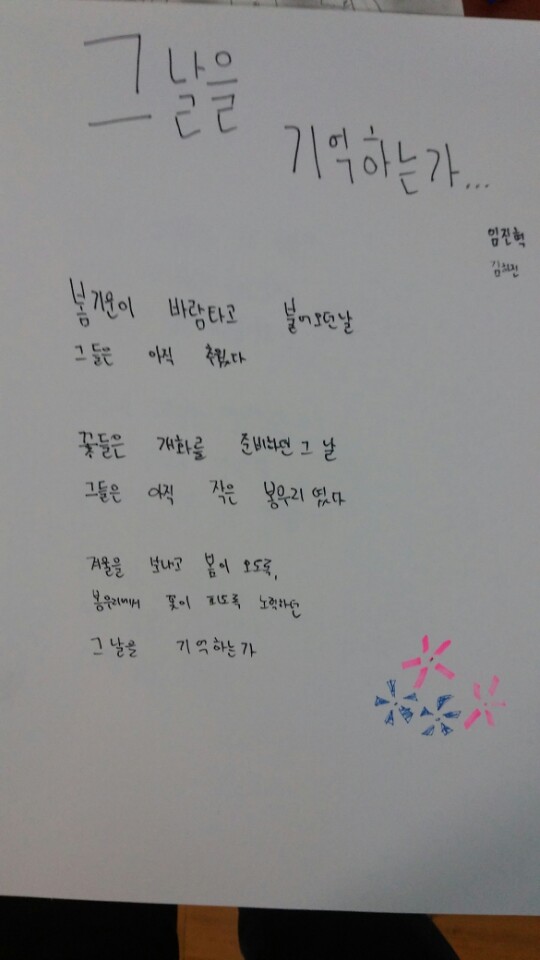 그날을
기억하는가...
임진혁
봄기운이 바람타고 불어오던날
그들은 아직 추웠다
꽃들은 개화를 준비하던 그 날
그들은 아직 작은 봉우리 였다
겨울을 보내고 봄이 오도록,
봉우리에서 꽃이 피도록 노력하던
그날을 기억하는가